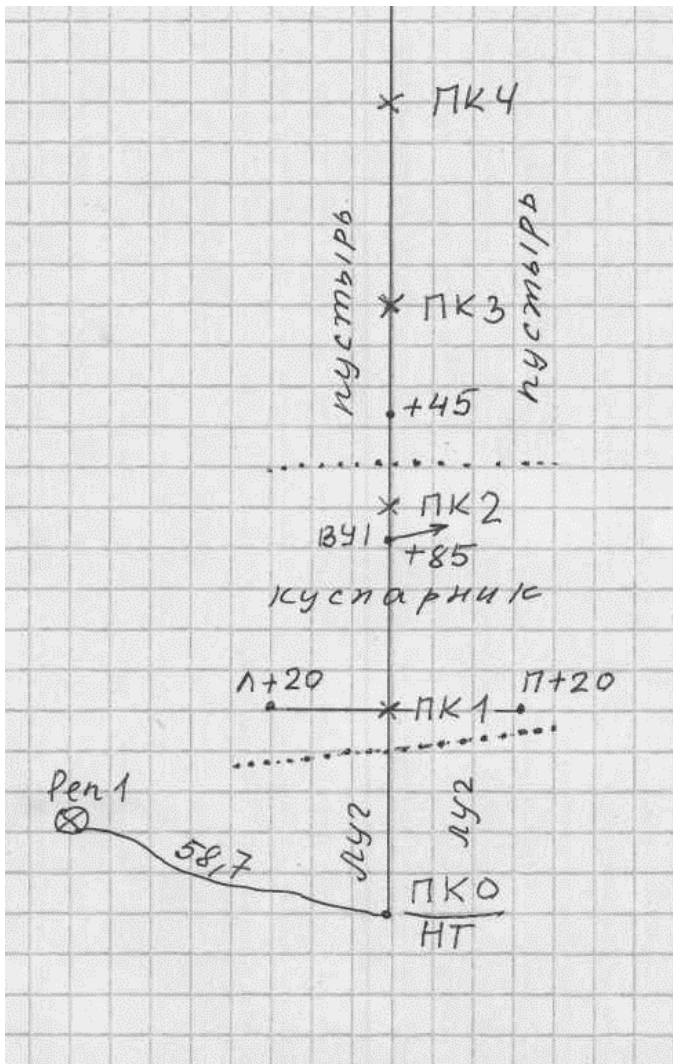 ПК4
пустырь
пустырь
ПК3
+45
ПК2
ВУ1
+85
кустарник
Л+20
П+20
ПК1
Реп 1
58,7
луг
луг
ПК0
НТ